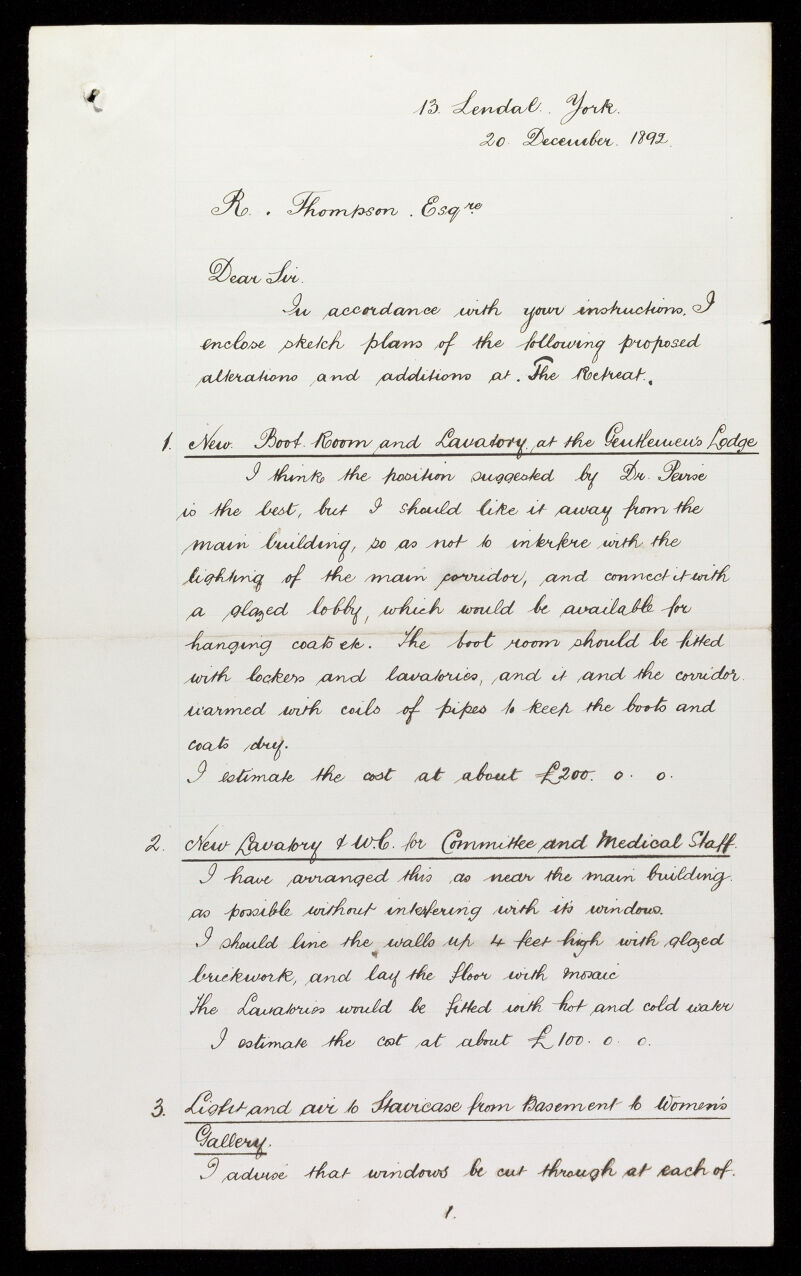 13. Lendal. York.
20. December. 1892.
R. . Thompson . Esqre
Dear Sir.
In accordance with your instructions. I
enclose sketch plans of the following proposed
alterations and additions at. The Retreat.
1. New. Boot. Room and Lavatory. at the Gentlemen's Lodge
I think the position suggested by Dr. Pierse
is the best, but I should like it away from the
main building, so as not to interfere with the
lighting of the main corridor, and connect it with
a glazed lobby, which would be available for
hanging coats etc. The boot room should be fitted
with lockers and lavatories, and it and the corridor.
warmed with coils of pipes to keep the boots and
coats dry.
I estimate the cost at about £200. 0. 0.
2. New Lavatory & W.C. for Committee and Medical Staff.
I have arranged this as near the main building.
as possible without interfering with its windows.
I should line the walls up 4 feet high with glazed
brickwork, and lay the floor with mosaic
The Lavatories would be fitted with hot and cold water
I estimate the cost at about £100. 0. 0.
3. Light and air to Staircase from Basement to Women's
Gallery.
I advise that windows be cut through at each of.
1.